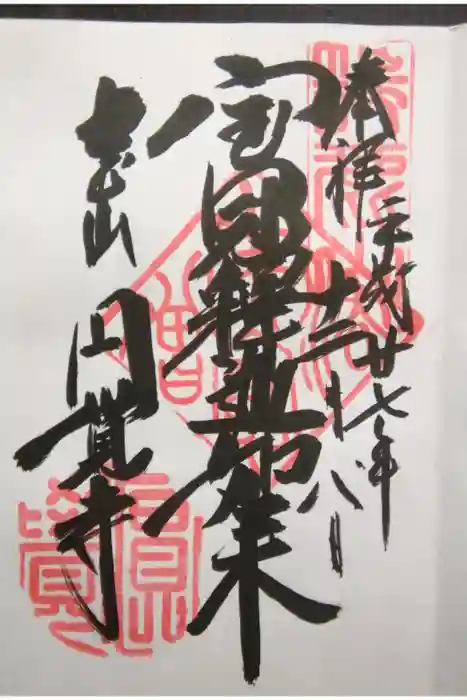 奉拝 平成廿七年
十二月八日
宝冠釈迦如来
円覚寺